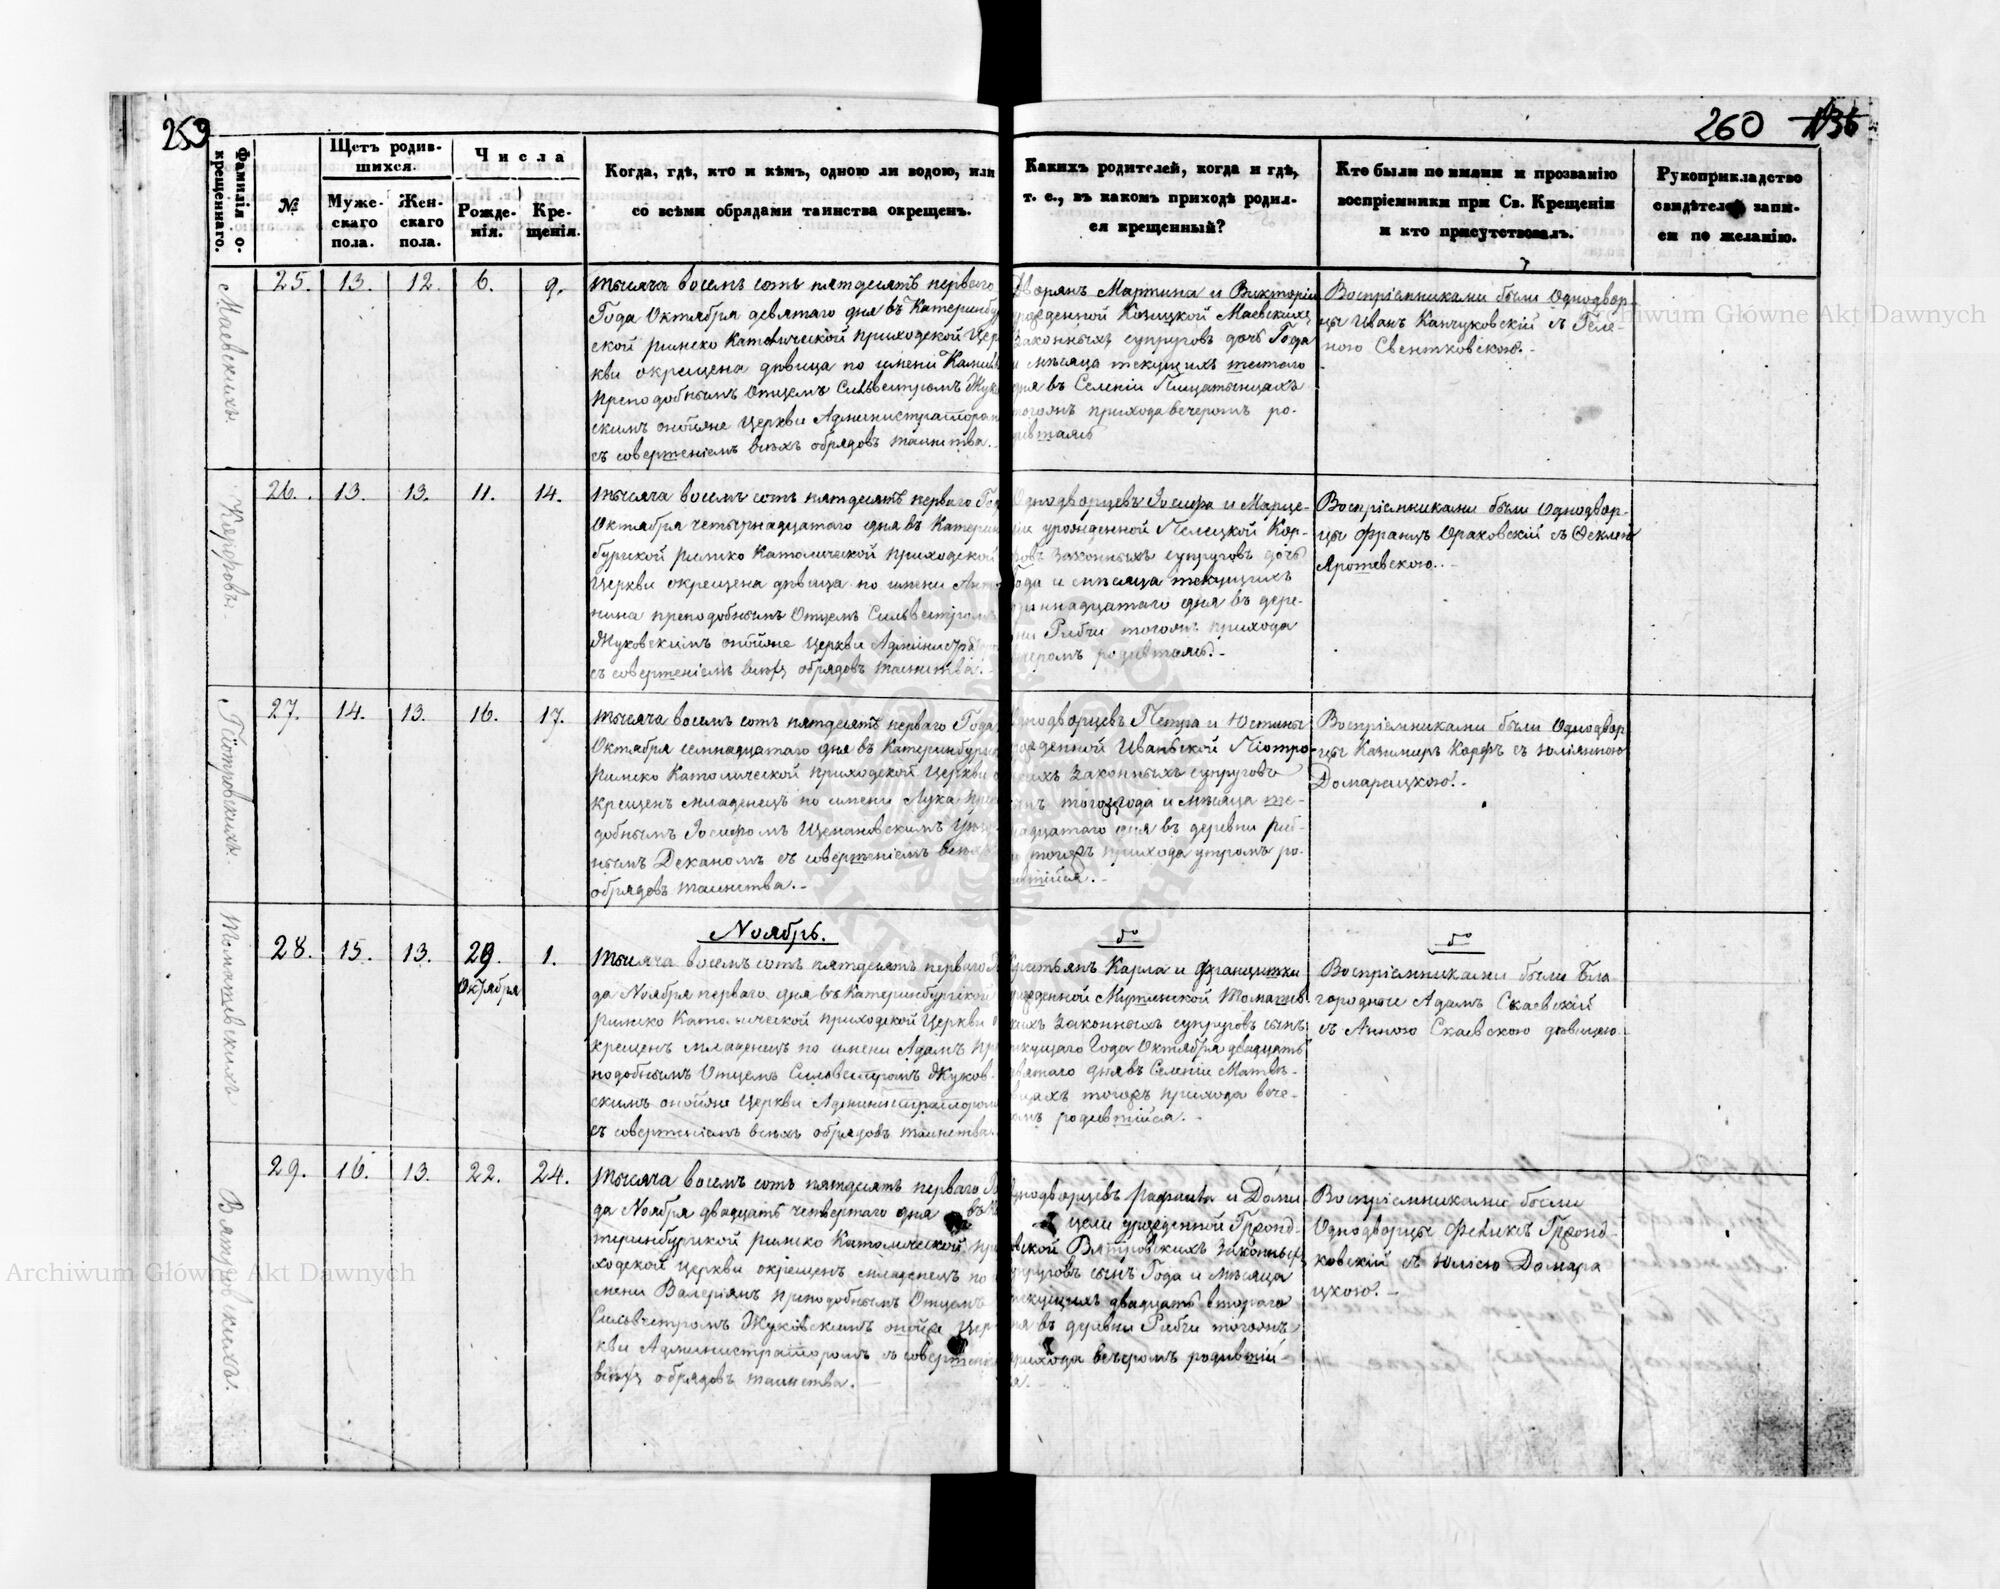 259
260 1136
Фамилія о-
крещеннаго.
№
Щетъ родив-
шихся.
Муже-
скаго
пола.
Жен-
скаго
пола.
Числа
Рожде-
нія.
Кре-
щенія.
Когда, гдѣ, кто и кѣмъ, одною ли водою, или
со всѣми обрядами таинства окрещенъ.
Какихъ родителей, когда и гдѣ,
т. е., въ какомъ приходѣ родил-
ся крещенный?
Кто были по имяни и прозванію
воспріемники при Св. Крещеніи
и кто присутствовалъ.
Рукоприкладство
свидѣтелей запи-
си по желанію.
Маевскихъ.
25. 13. 12. 6. 9.
тысяча восемь сотъ пятдесятъ перваго
Года Октября девятаго дня въ Катеринбу
ской римско Католической приходской Цер
кви окрещена дѣвица по имени Камил
преподобнымъ Отцемъ Сильвестромъ Жуко
скимъ онойже Церкви Администраторо
съ совершеніемъ всѣхъ обрядовъ таинства.
Дворянъ Мартина и Викторіи
рожденной Козицкой Маевскихъ
законныхъ супруговъ дочь Года
и мѣсяца текущихъ шестого
дня въ Селеніи
тогожъ прихода вечеромъ ро-
дившаясь
Воспріемниками были Однодвор-
цы Иванъ Канчуковскій съ Геле-
ною Свентковскою.
Корфовъ.
26. 13. 13. 11. 14.
тысяча восемь сотъ пятдесятъ перваго Год
Октября четырнадцатаго дня въ Катерин
бургской римско Католической приходской
Церкви окрещена дѣвица по имени Анто
нина преподобнымъ Отцемъ Сильвестромъ
Жуковскимъ онойже Церкви Администра
съ совершеніемъ всѣхъ обрядовъ таинства.
Однодворцевъ Іосифа и Марце-
ліи урожденной Пелецкой Кор-
фовъ законныхъ супруговъ дочь
Года и мѣсяца текущихъ
одиннадцатаго дня въ дере-
вни Рабчи тогожъ прихода
вечеромъ родившаясь.
Воспріемниками были Однодвор-
цы Францъ Ораховскій съ Ѳеклею
Ярошевскою.
Піотровскихъ.
27. 14. 13. 16. 17.
тысяча восемь сотъ пятдесятъ перваго Года
Октября семнадцатаго дня въ Катеринбург
Римско Католической приходской Церкви о
крещенъ младенецъ по имени Лука пре
добнымъ Іосифомъ Щепановскимъ
нымъ Деканомъ съ совершеніемъ всѣхъ
обрядовъ таинства.
Однодворцевъ Петра и Юстины
рожденной Иваньской Піотро-
вскихъ законныхъ супруговъ
сынъ тогожъ года и мѣсяца ше-
надцатаго дня въ деревни Раб-
чи тогожъ прихода утромъ ро-
дившійся.
Воспріемниками были Однодвор
цы Казимиръ Корфъ съ Юліянною
Домарацкою.
Томашевскихъ
Ноябрь.
28. 15. 13. 29. 1.
Октября
тысяча восемь сотъ пятдесятъ перваго Г
да Ноября перваго дня въ Катеринбургской
римско Католической приходской Церкви о
крещенъ младенецъ по имени Адамъ пре
подобнымъ Отцемъ Сильвестромъ Жуков-
скимъ онойже Церкви Администраторомъ
съ совершеніемъ всѣхъ обрядовъ таинства.
Крестьянъ Карла и Францишки
рожденной Томашев
скихъ законныхъ супруговъ сынъ
текущаго Года Октября двадцать
девятаго дня въ Селеніи Матвѣ-
вцахъ тогожъ прихода вече-
ромъ родившійся.
Воспріемниками были Бла-
городные Адамъ Скаевскій
съ Анною Скаевскою дѣвицею.
Вятровскихъ.
29. 16. 13. 22. 24.
тысяча восемь сотъ пятдесятъ перваго Го
да Ноября двадцать четвертаго дня въ Ка
теринбургской римско Католической при
ходской Церкви окрещенъ младенецъ по и
мени Валеріянъ преподобнымъ Отцемъ
Сильвестромъ Жуковскимъ онойже Цер
кви Администраторомъ съ совершеніе
всѣхъ обрядовъ таинства.
Однодворцевъ Рафаила и Доми
цели урожденной Гронд-
ковской Вятровскихъ законныхъ
супруговъ сынъ Года и мѣсяца
текущихъ двадцать втораго
дня въ деревни Рабчи тогожъ
прихода вечеромъ родившій-
ся.
Воспріемниками были
Однодворцы Феликсъ Гронд-
ковскій съ Юліею Домара
цкою.
Archiwum Główne Akt Dawnych
Archiwum Główne Akt Dawnych